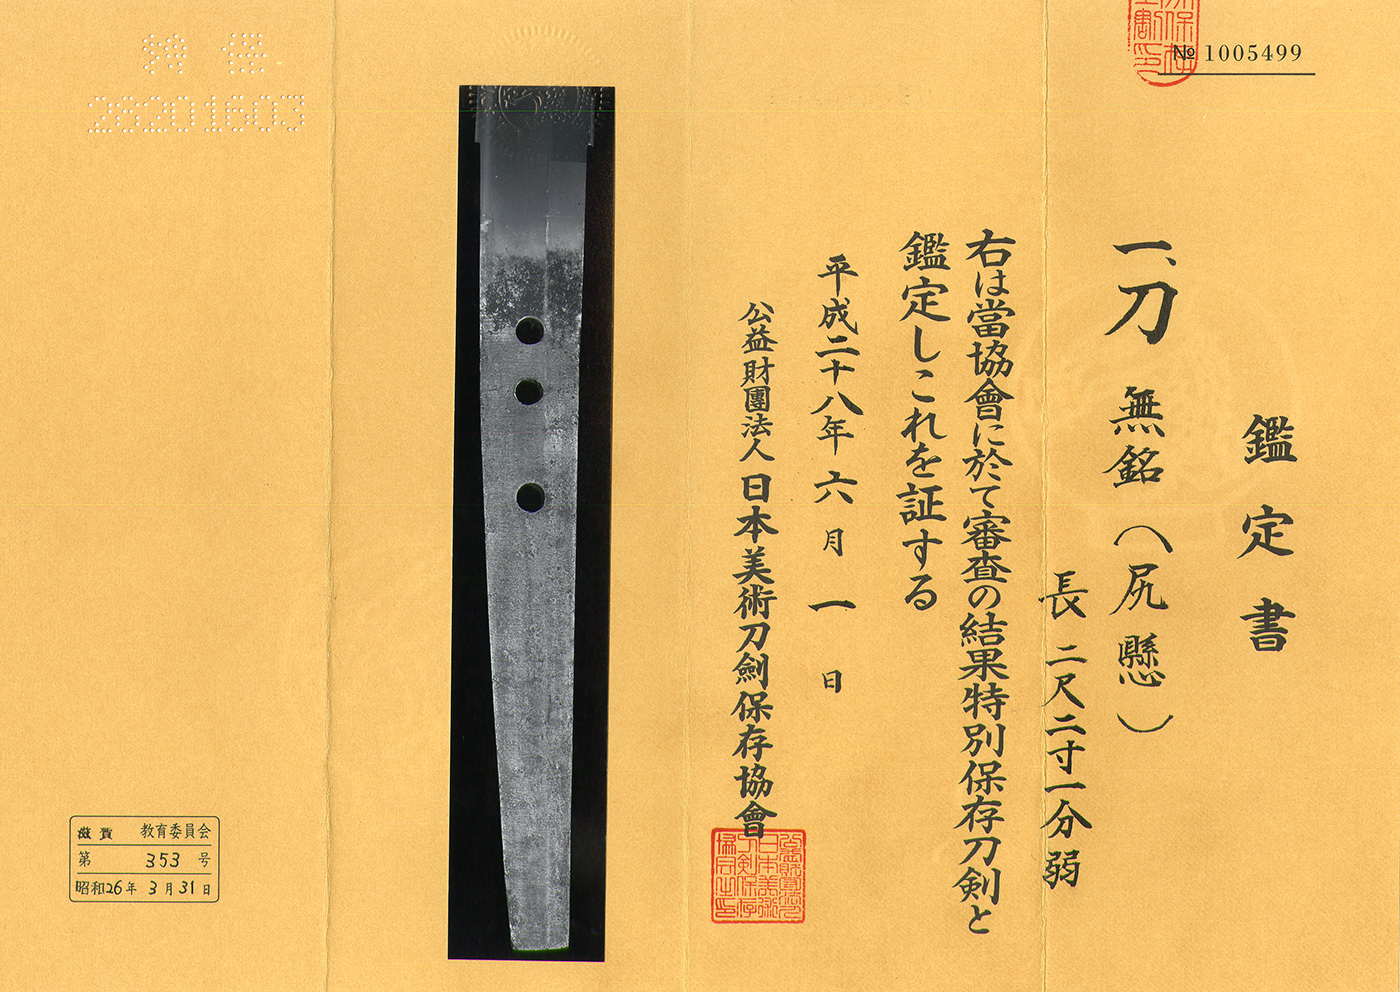 № 1005499
鑑定書
一、刀 無銘（尻懸）
長 二尺二寸一分弱
右は當協會に於て審査の結果特別保存刀剣と
鑑定しこれを証する
平成二十八年六月一日
公益財團法人 日本美術刀劍保存協會
28201603
滋賀 教育委員会
第 353 号
昭和26年3月31日